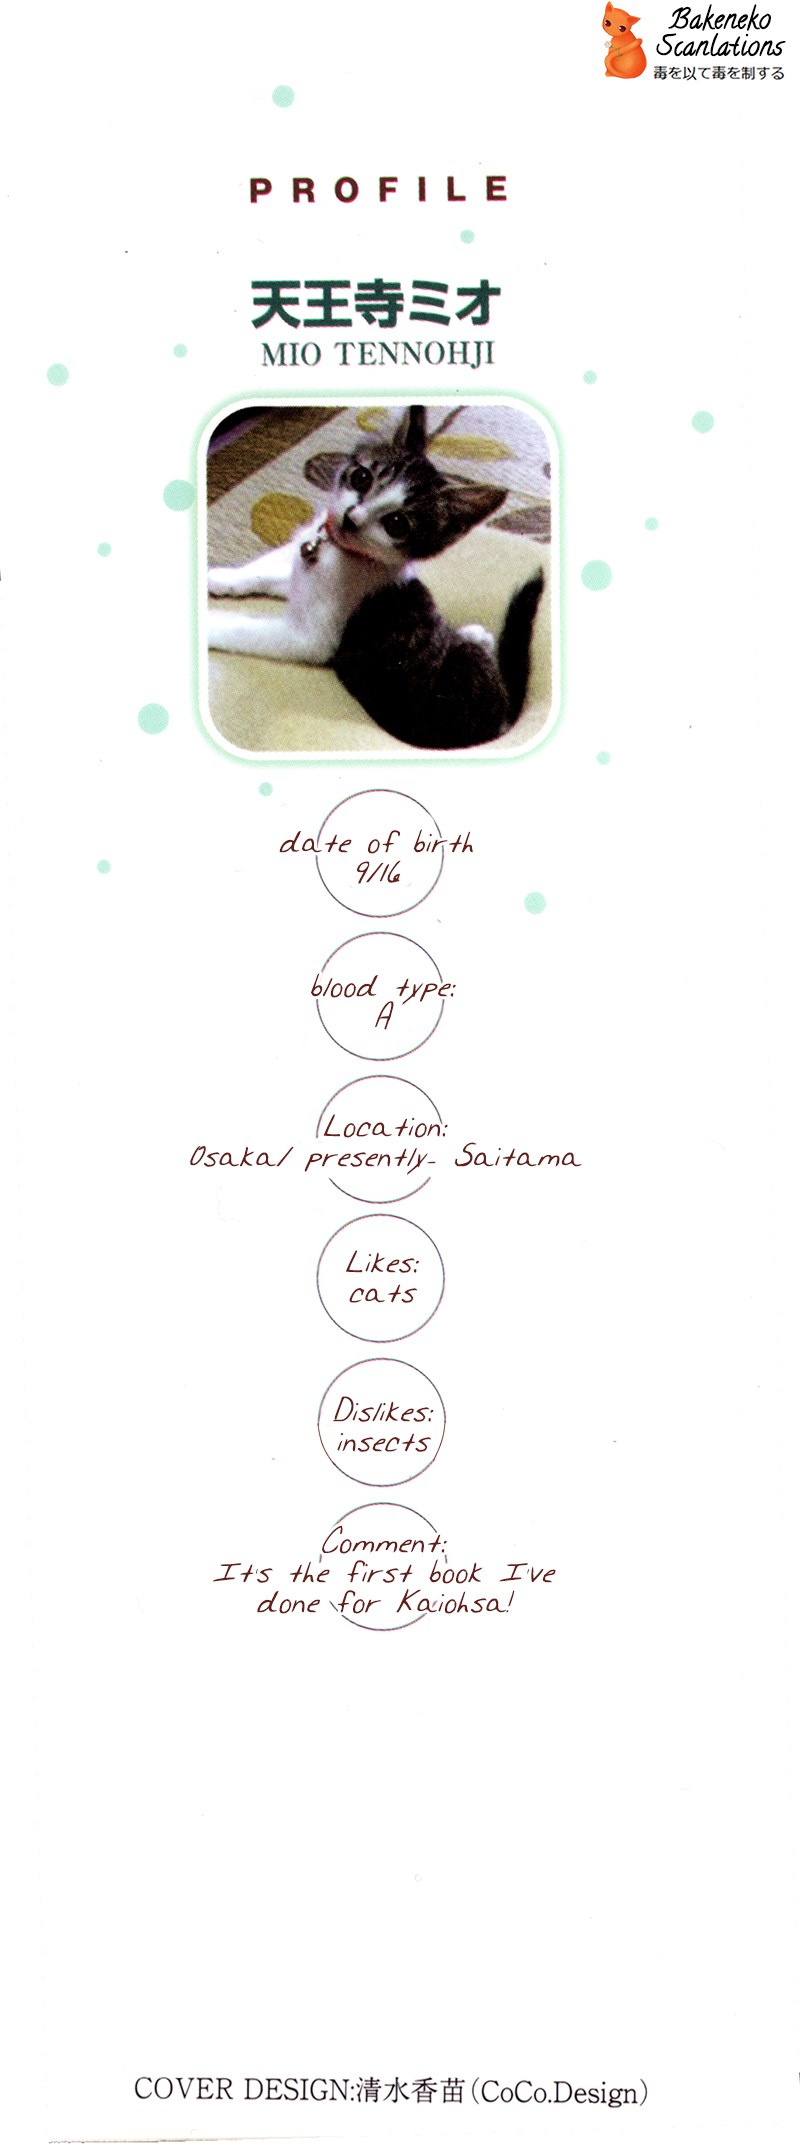 Bakeneko
Scanlations
毒を以て毒を制する
PROFILE
天王寺ミオ
MIO TENNOHJI
date of birth
9/16
blood type:
A
Location:
Osaka/ presently- Saitama
Likes:
cats
Dislikes:
insects
Comment:
It's the first book I've
done for Kaiohsa!
COVER DESIGN:清水香苗(CoCo.Design)